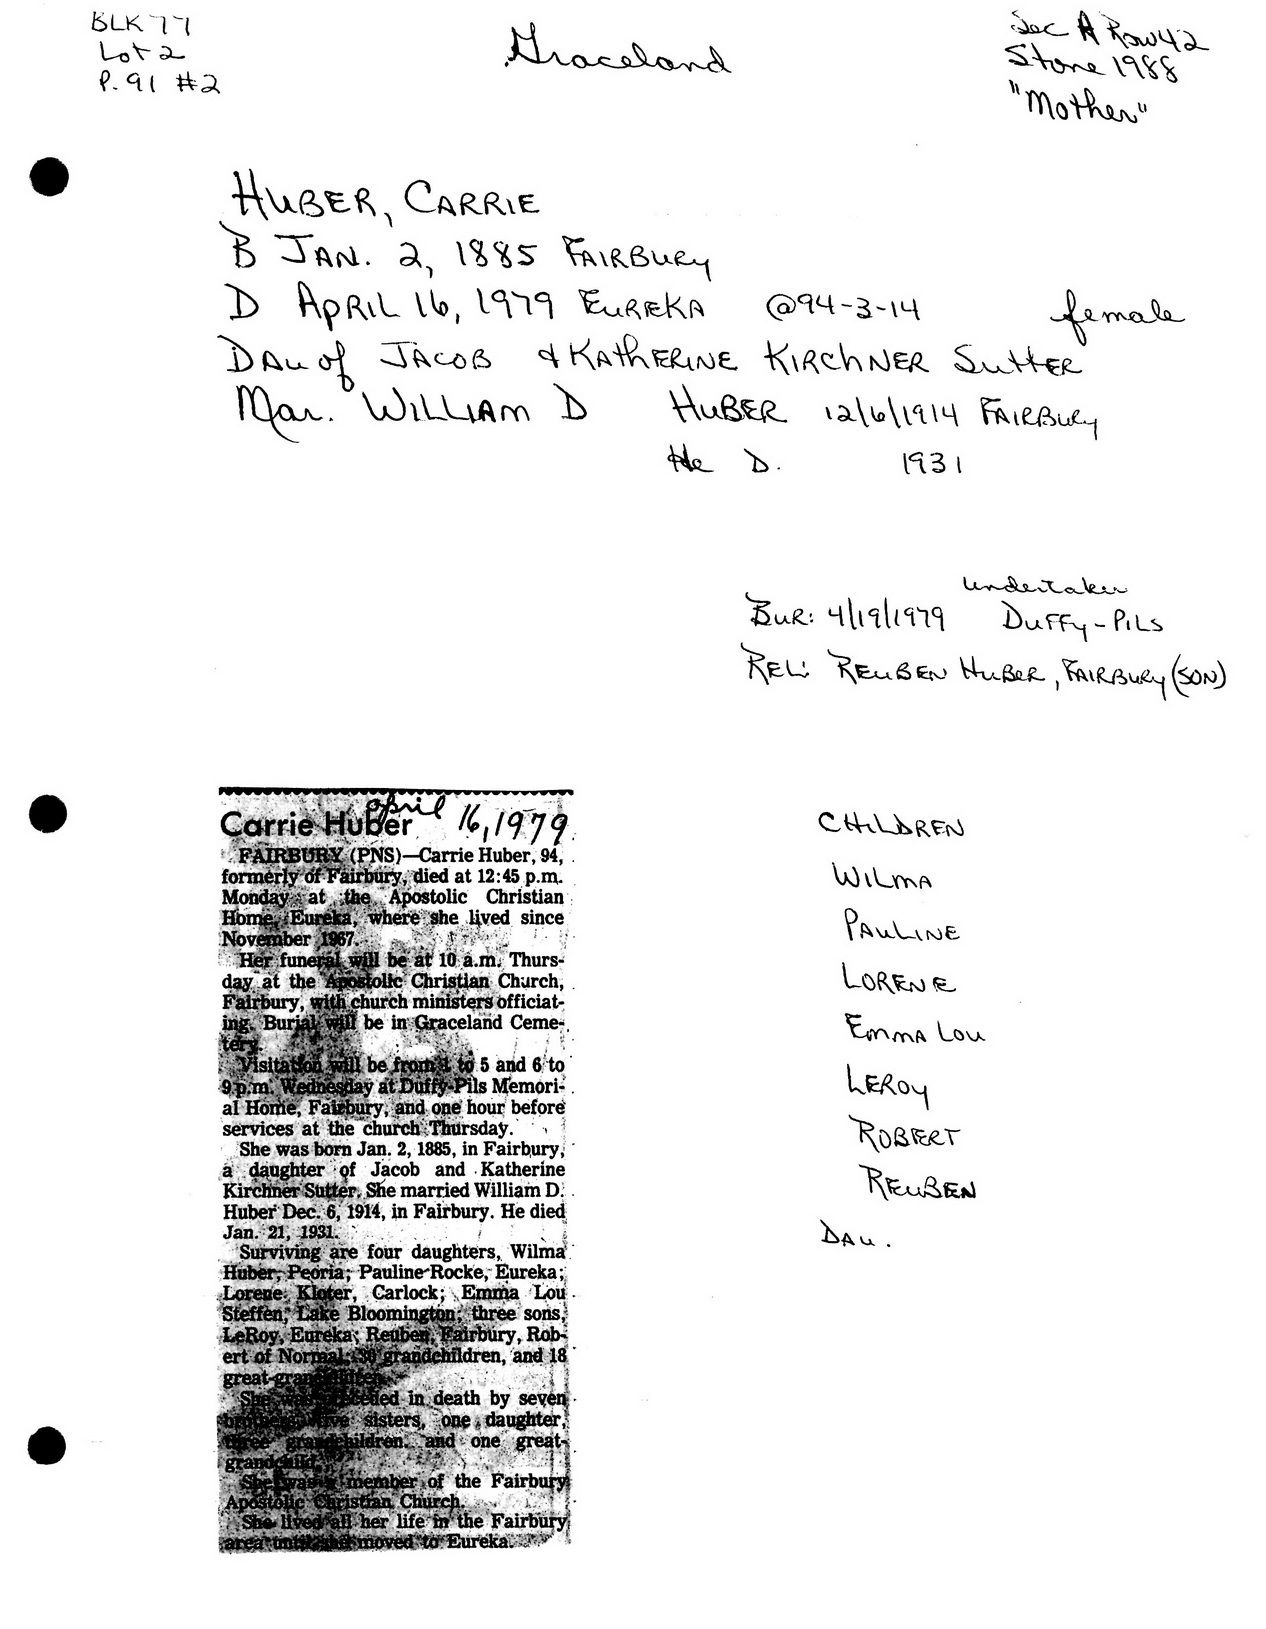 BLK 77
Lot 2
P. 91 #2
Graceland
Sec A Row 42
Stone 1988
"Mother"
HUBER, CARRIE
B JAN. 2, 1885 FAIRBURY
D APRIL 16, 1979 EUREKA @94-3-14 female
DAU of JACOB & KATHERINE KIRCHNER SUTTER
Mar. WILLIAM D HUBER 12/6/1914 FAIRBURY
He D. 1931
undertaker
BUR: 4/19/1979 DUFFY-PILS
REL: REUBEN HUBER, FAIRBURY (SON)
april 16, 1979
Carrie Huber
FAIRBURY (PNS)—Carrie Huber, 94,
formerly of Fairbury, died at 12:45 p.m.
Monday at the Apostolic Christian
Home, Eureka, where she lived since
November 1967.
Her funeral will be at 10 a.m. Thurs-
day at the Apostolic Christian Church,
Fairbury, with church ministers officiat-
ing. Burial will be in Graceland Ceme-
tery.
Visitation will be from 1 to 5 and 6 to
9 p.m. Wednesday at Duffy-Pils Memori-
al Home, Fairbury, and one hour before
services at the church Thursday.
She was born Jan. 2, 1885, in Fairbury,
a daughter of Jacob and Katherine
Kirchner Sutter. She married William D.
Huber Dec. 6, 1914, in Fairbury. He died
Jan. 21, 1931.
Surviving are four daughters, Wilma
Huber, Peoria; Pauline Rocke, Eureka;
Lorene Kloter, Carlock; Emma Lou
Steffen, Lake Bloomington; three sons,
LeRoy, Eureka; Reuben, Fairbury, Rob-
ert of Normal; grandchildren, and 18
great-grandchildren.
She was preceded in death by seven
brothers, five sisters, one daughter,
three grandchildren, and one great-
grandchild.
She was a member of the Fairbury
Apostolic Christian Church.
She lived all her life in the Fairbury
area until she moved to Eureka.
CHILDREN
WILMA
PAULINE
LORENE
EMMA LOU
LEROY
ROBERT
REUBEN
DAU.